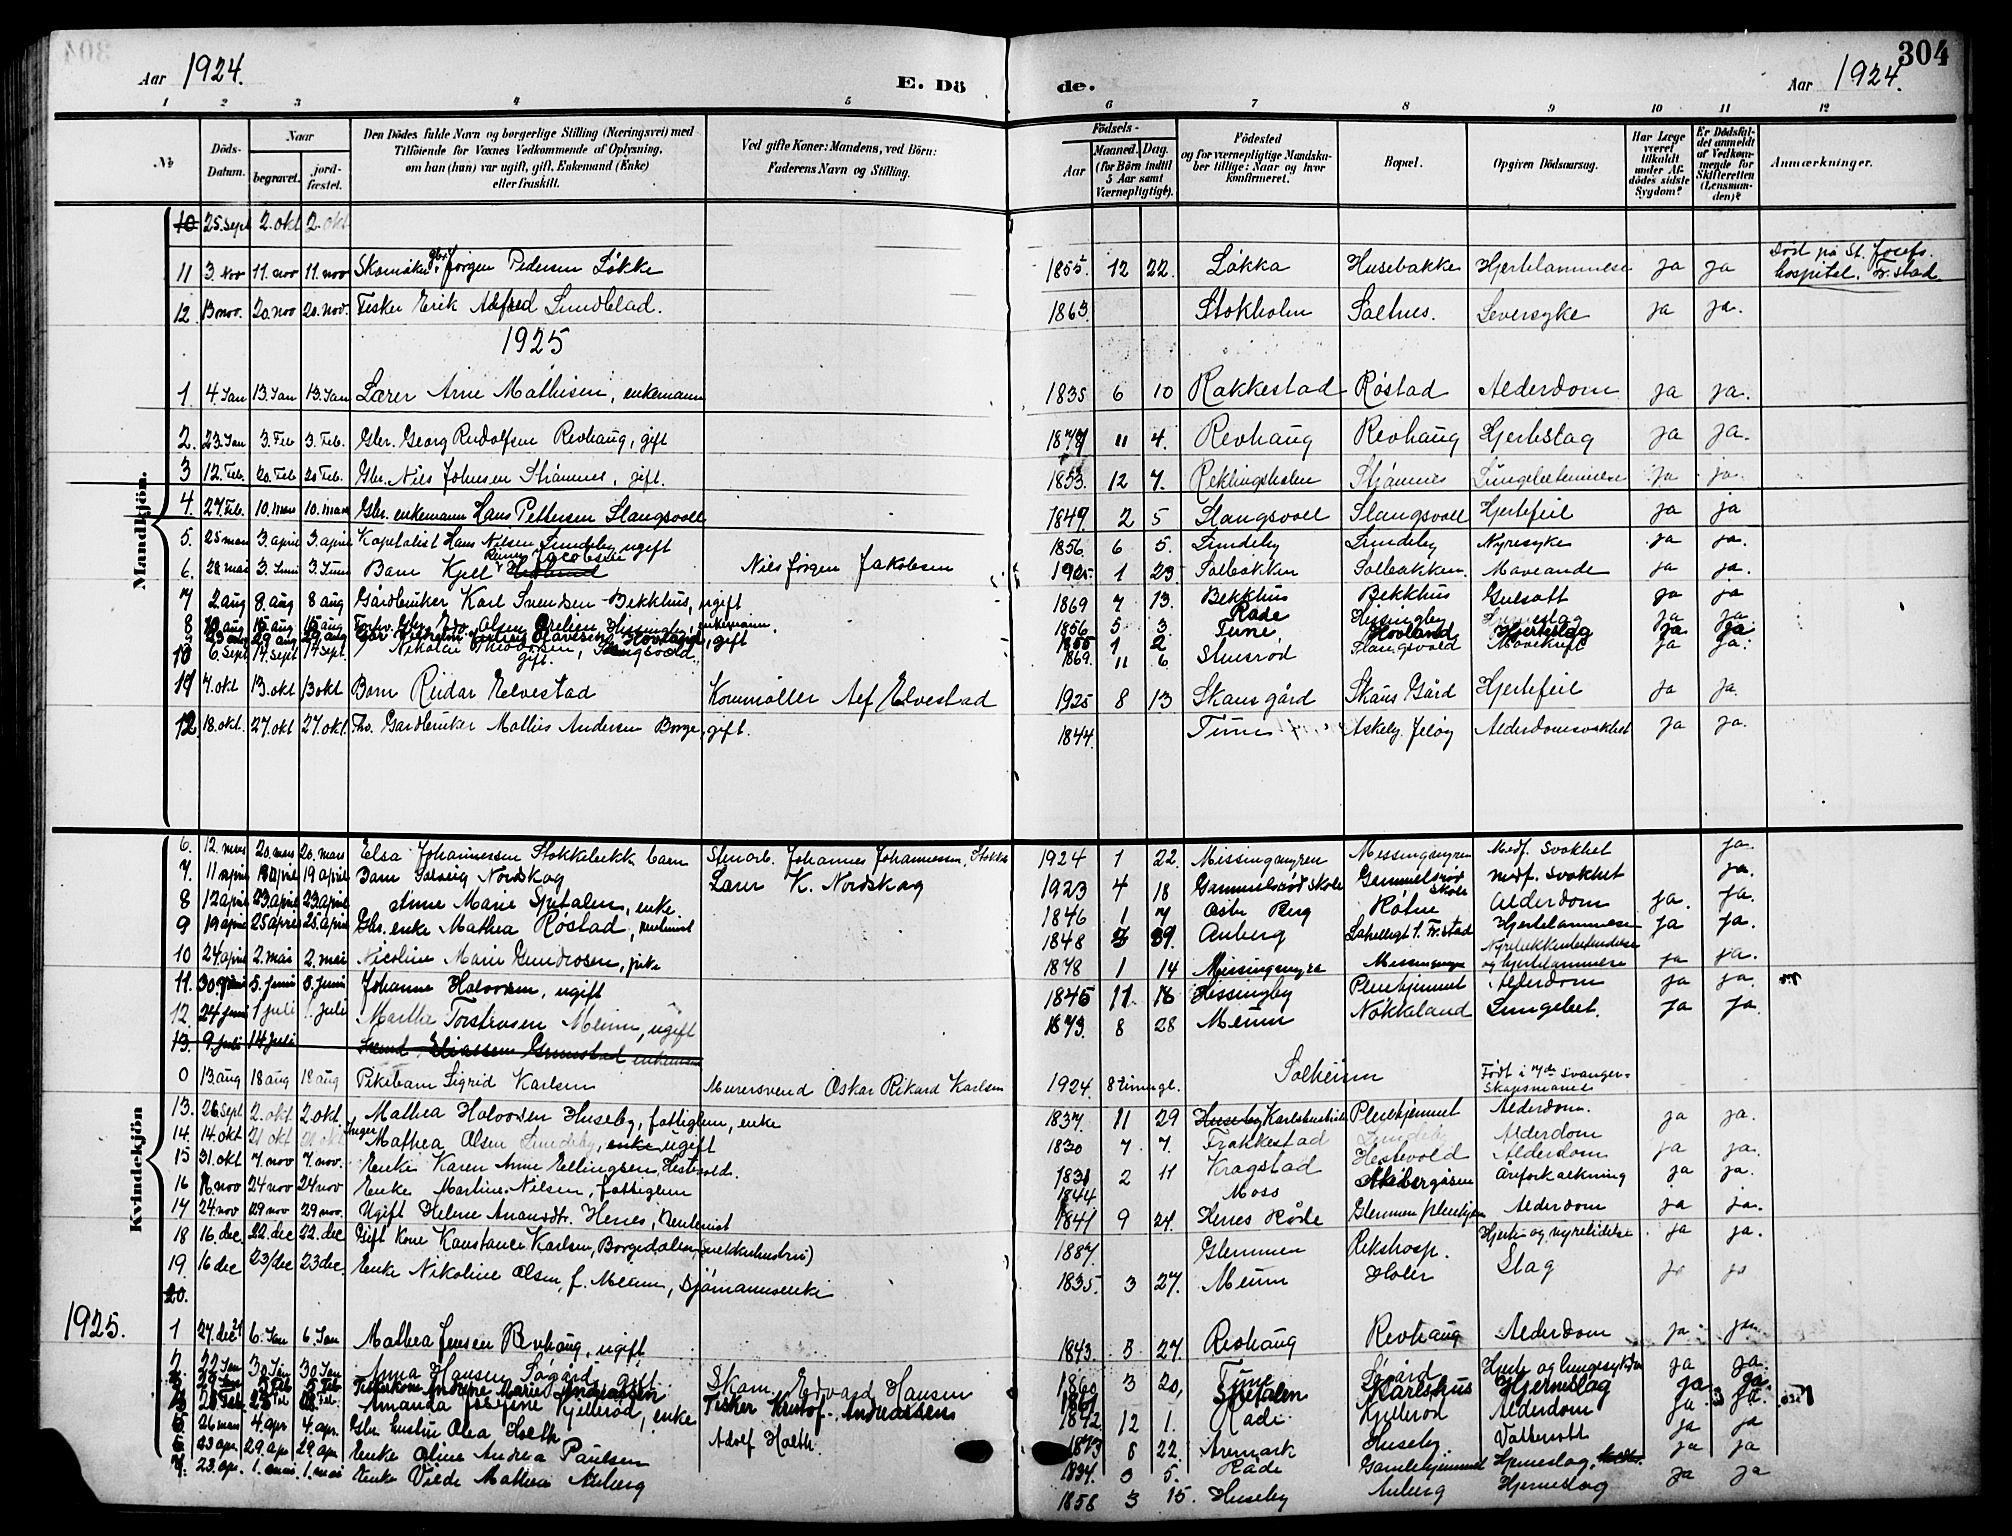 304
Aar 1924. E. Dö de. Aar 1924.
1 2 3 4 5 6 7 8 9 10 11 12
No Döds-Datum. Naar begravet. jord-fæstet. Den Dödes fulde Navn og borgerlige Stilling (Næringsvei) med Tilföiende for Voxnes Vedkommende af Oplysning, om han (hun) var ugift, gift, Enkemand (Enke) eller fraskilt. Ved gifte Koner: Mandens, ved Börn: Faderens Navn og Stilling. Födsels- Aar Maaned. Dag. (for Börn indtil 5 Aar samt Værnepligtige). Födested og for værnepligtige Mandskaber tillige: Naar og hvor konfirmeret. Bopæl. Opgiven Dödsaarsag. Har Læge været tilkaldt under Afdödes sidste Sygdom? Er Dödsfaldet anmeldt af Vedkommende for Skifteretten (Lensmanden)? Anmærkninger.
Mandkjön.
10 25 Sept 2. okt 2. okt
11 3. nov 11. nov 11. nov Skomaker gbr. Jørgen Pedersen Løkke 1855 12 22. Løkka Husebakke Hjertelammelse ja ja Død på St. Josefs hospital. Fr.stad
12. 13 nov. 20. nov 20. nov. Fisker Erik Alfred Lundblad. 1863. Stokholm Saltnes. Leversyke ja ja.
1925
1. 4. Jan 13. Jan 13. Jan Lærer Arne Mathisen, enkemann 1835 6 10 Rakkestad Røstad Alderdom ja ja.
2. 23. Jan 3. Feb 3. Feb. Gbr. Georg Rudolfsen Revhaug, gift 1877 11 4. Revhaug Revhaug Hjerteslag ja ja.
3 12. Feb. 20. Feb 20 Feb. Gbr. Nils Johnsen Strømnes, gift. 1853. 12 7. Strømnes Lungebetennelse ja ja.
4. 27. Feb. 10. mars 10. mars Gbr. enkemann Hans Pettersen Slangsvoll 1849 2 5 Slangsvoll Slangsvoll Hjertefeil ja ja
5. 25 mars 3. april 3. april Kapitalist Hans Nilsen Lundeby ugift 1856 6 5. Lundeby Lundeby Nyresyke ja ja.
6. 28 mai 3. Juni 3. Juni Barn Kjell Reiner Jacobsen Nils Jørgen Jakobsen 1925 1 23. Solbakken Solbakken. Maveonde ja ja.
7 2 aug 8. aug 8 aug Gårdbruker Karl Svendsen Bekkhus, ugift 1869 7 13. Bekkhus Bekkhus Gulsott ja ja
8 10 aug 15 aug 15 aug Olsen Missingby, enkemann. 1856 5 3. Råde Missingby ja ja
9 23 aug 29 aug 29 aug Olavesen Hovland, gift 1855 1 2 Tune Hovland Hjerteslag ja ja
10 6. Sept 14. Sept 14 Sept. Nikolai Theodorsen, Slangsvold. gift. 1869. 11 6 Stensrød Slangsvold Mavekreft ja ja.
11 7. okt 13. okt 13 okt Barn Reidar Elvestad Kornmøller Alf Elvestad 1925 8 13 Skaus gård Skaus Gård Hjertefeil ja ja.
12. 18. okt. 27. okt 27. okt. Fhv. Gårdbruker Mathis Andersen Borge, gift. 1844. Tune Askeby. Jeløy Alderdomssvakhet ja ja
Kvindekjön
6. 12. mars 20. mars 20. mars Elsa Johannessen Stokkebekk barn Stenarb. Johannes Johannessen, 1924 1 22. Missingmyren Missingmyren Medf. svakhet ja.
7. 11 april 19 april 19 april Barn Solveig Nordskag Lærer K. Nordskag 1923 4 18 Gammelsrød skole Gammelsrød skole medf. svakhet ja.
8 12 april 23. april 23. april Anne Marie Spetalen, enke. 1846 1 7 Østre Berg Alderdom ja. ja.
9 19 april 25 april 25. april Gbr. enke Mathea Røstad, Rentenist 1848 29. Anberg Fr.stad Hjertelammelse ja ja.
10 24. april 2. mai 2. mai Nicoline Marie Gundrosen, pike 1878 1 14 Missingmyra Missingmyra Nyrebekkenbetendelse og hjertelammelse ja ja.
11. 30 5. Juni 5. Juni Johanne Halvorsen, ugift 1845 11 16 Missingby Pleiehjemmet Alderdom ja ja.
12. 24 juni 1 juli 1. juli Marthe Torstensen Meum, ugift 1873. 8 28 Meum Nøkkeland Lungebet. ja ja.
13. 9. juli 14 juli Svend Eliassen Grimstad enkemann
0 13. aug 18 aug 18 aug Pikebarn Sigrid Karlsen Murersvend Oskar Rikard Karlsen 1924 8 timer gl. Solheim Født i 7de Svangerskapsmåned
13. 26. sept 2. okt. 2. okt. Mathea Halvorsen Huseby, fattiglem, enke 1837. 11 29 Huseby Pleiehjemmet Alderdom. ja ja.
14. 14. okt 21 okt 21 okt Inger Mathea Olsen Lundeby, enke ugift 1830 7 7. Trøkkestad Lundeby Alderdom ja ja.
15 31. okt 7. nov 7. nov. Enke Karen Anne Ellingsen, Hestevold. 1831 2 11 Kragstad Hestevold Alderdom
16 18. nov 24 nov 24 nov Enke Martine Nilsen, fattiglem 1844 Moss Åreforkalkning ja ja.
17 24. nov 29 nov 29 nov. Ugift Helene Anansdtr. Henes, Rentenist 1841 9 24. Henes Råde Glemmen pleiehjem Alderdom ja ja.
18 16. dec. 22. dec 22. dec Gift kone Konstance Karlsen, Borgedalen 1887. Glemmen Rikshosp. Hjerte og nyrelidelse. ja ja.
19 16 dec 23/dec 23 dec. Enke Nikoline Olsen, f. Meum, sjømannsenke 1835 3 27. Meum Holer Slag ja ja
20.
1925. 1 27. dec 24 6. Jan 6. Jan Mathea Jensen Revhaug, ugift 1843. 3 27. Revhaug Revhaug Alderdom ja ja.
2. 22. Jan 30. Jan 30. Jan Anna Hansen Løgård, gift Skom. Edvard Hansen 1860 3 20. Tune Løgård Hjerte og lungesykdom ja ja.
Fiskerkone Andrine Marie Andreassen Fisker Kristof. Andreassen 1861 Spetalen Karlshus Hjerneslag ja ja.
Amanda Josefine Kjellerød, enke 1842 12 1. Råde. Kjellerød Alderdom ja ja
26 mars 4. apr 4. apr. Gbr. hustru Olea Holth Adolf Holth. 1873 6 22. Aremark Huseby. Vattersott ja ja
23 apr. 29. apr 29. apr Enke Oline Andrea Paulsen 1834. 3 5. Råde Gamlehjemmet Hjerneslag. ja ja
7. 23. apr. 1. mai 1. mai Enke Vilde Mathea Anberg 1858 3 15. Huseby Anberg Hjerneslag ja ja